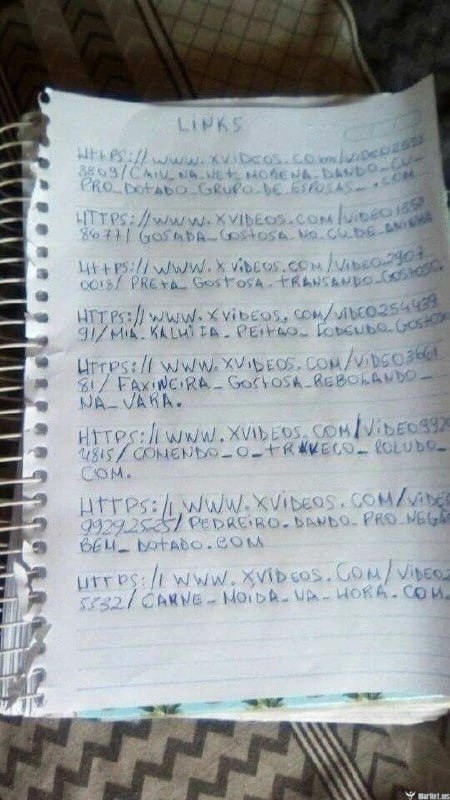 LINKS
HTTPS://WWW.XVIDEOS.COM/VIDEO2532
3803/CAIU_NA_NET_MORENA_DANDO_CU_
PRO_DOTADO_GRUPO_DE_ESPOSAS_.COM
HTTPS://WWW.XVIDEOS.COM/VIDEO1358
8677/GOSADA_GOSTOSA_NO_CU_DE_ANINHA
HTTPS://WWW.XVIDEOS.COM/VIDEO2907
0018/PRETA_GOSTOSA_TRANSANDO_GOSTOSO.
HTTPS://WWW.XVIDEOS.COM/VIDEO254439
91/MIA_KALHITA_PEITAO_FODENDO_GOSTOSO
HTTPS://WWW.XVIDEOS.COM/VIDEO3661
81/FAXINEIRA_GOSTOSA_REBOLANDO_
NA_VARA.
HTTPS://WWW.XVIDEOS.COM/VIDEO992
4815/COMENDO_O_TRAVECO_ROLUDO_
COM.
HTTPS://WWW.XVIDEOS.COM/VIDEO
99292525/PEDREIRO_DANDO_PRO_NEGÃO
BEM_DOTADO.COM
HTTPS://WWW.XVIDEOS.COM/VIDEO2
5532/CARNE_MOIDA_NA_HORA.COM